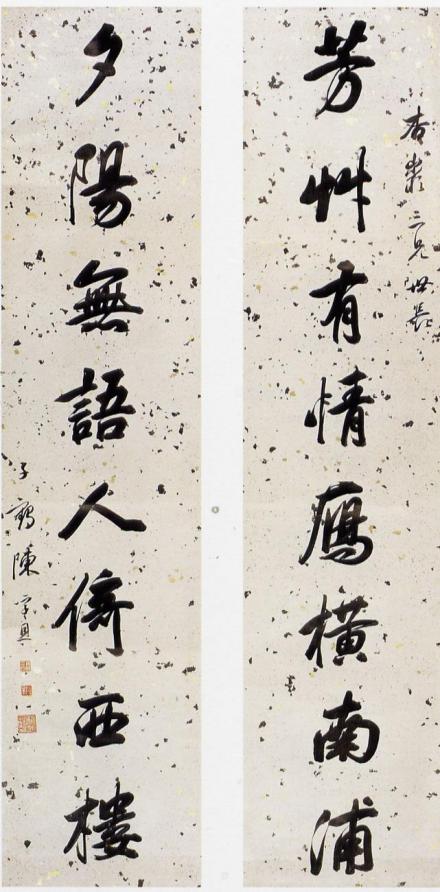 杏叢三兄世長
芳艸有情雁橫南浦
夕陽無語人倚西樓
子鶴陳孚恩